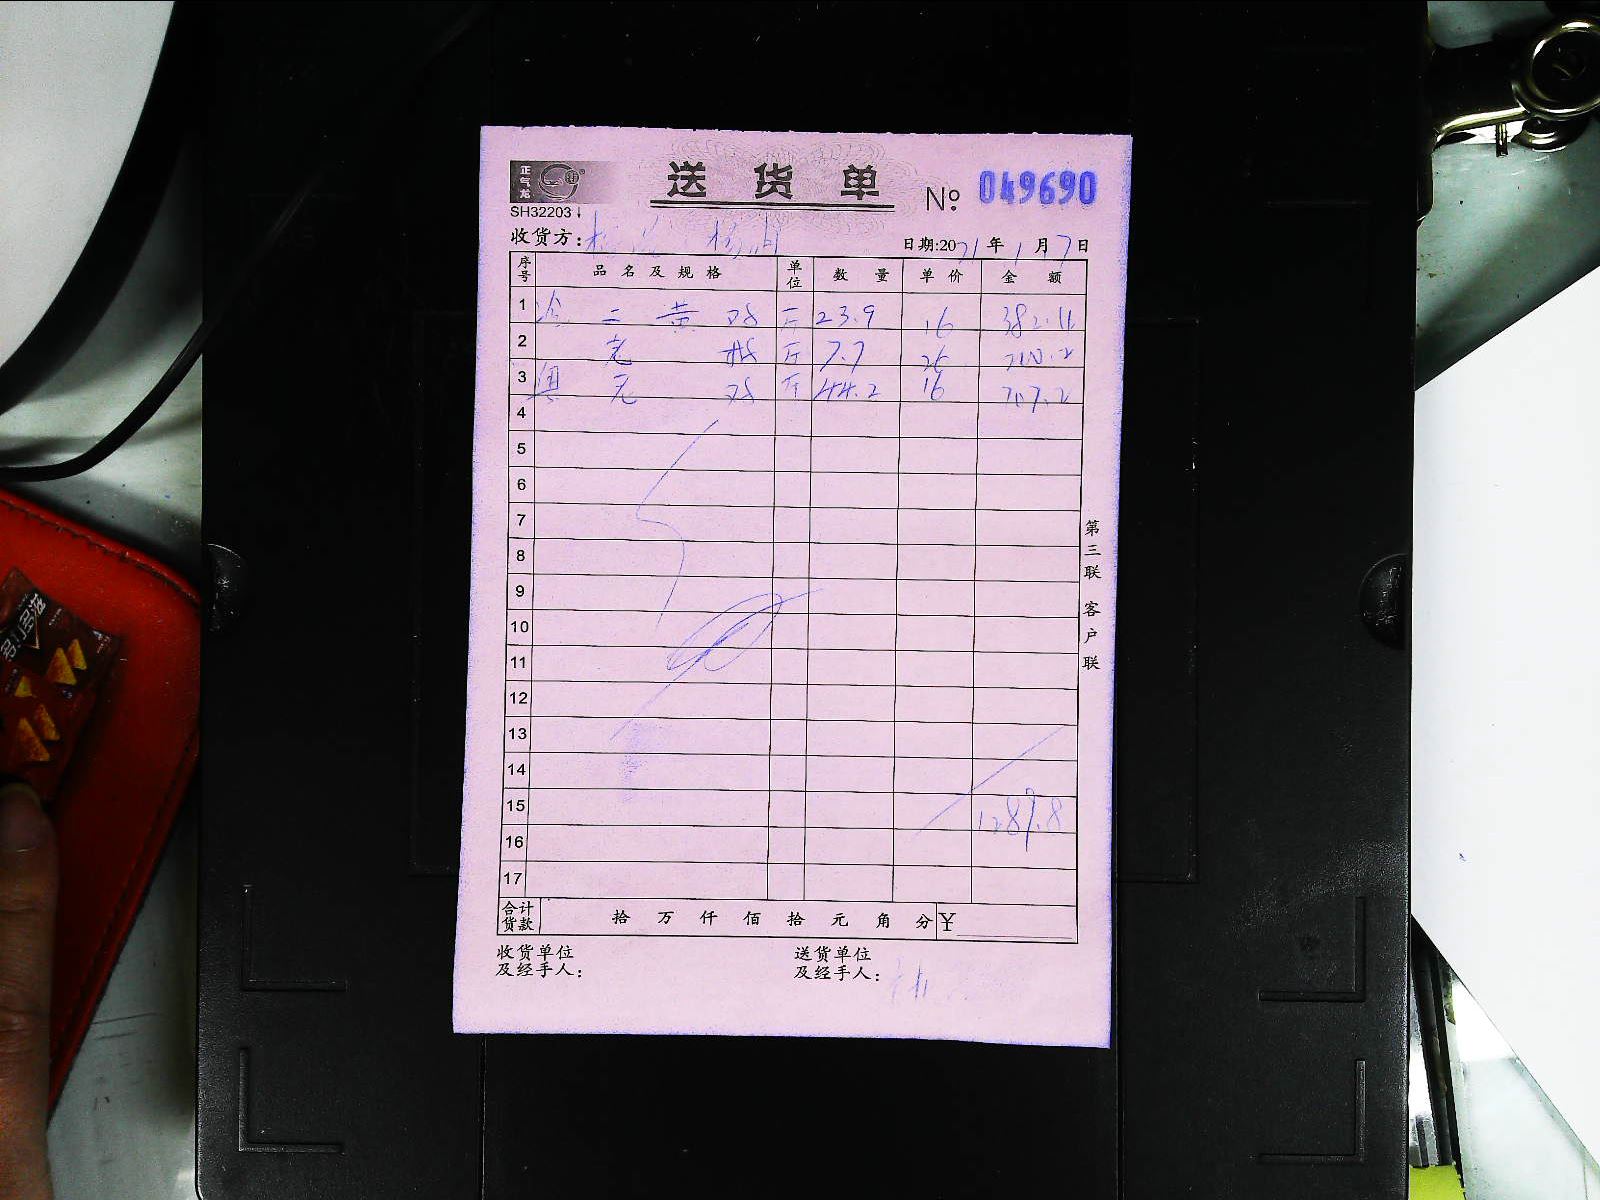 正气龙
送货单
№ 049690
SH32203
收货方：
日期:2021年1月7日
序号 品名及规格 单位 数量 单价 金额
1 冷二黄鸡 斤 23.9 16 382.4
2 老 斤 7.7 26 200.2
3 鸡 斤 44.2 16 707.2
4
5
6
7
8
9
10
11
12
13
14
15 1289.8
16
17
合计货款 拾万仟佰拾元角分 ¥
收货单位及经手人：
送货单位及经手人：
第三联 客户联